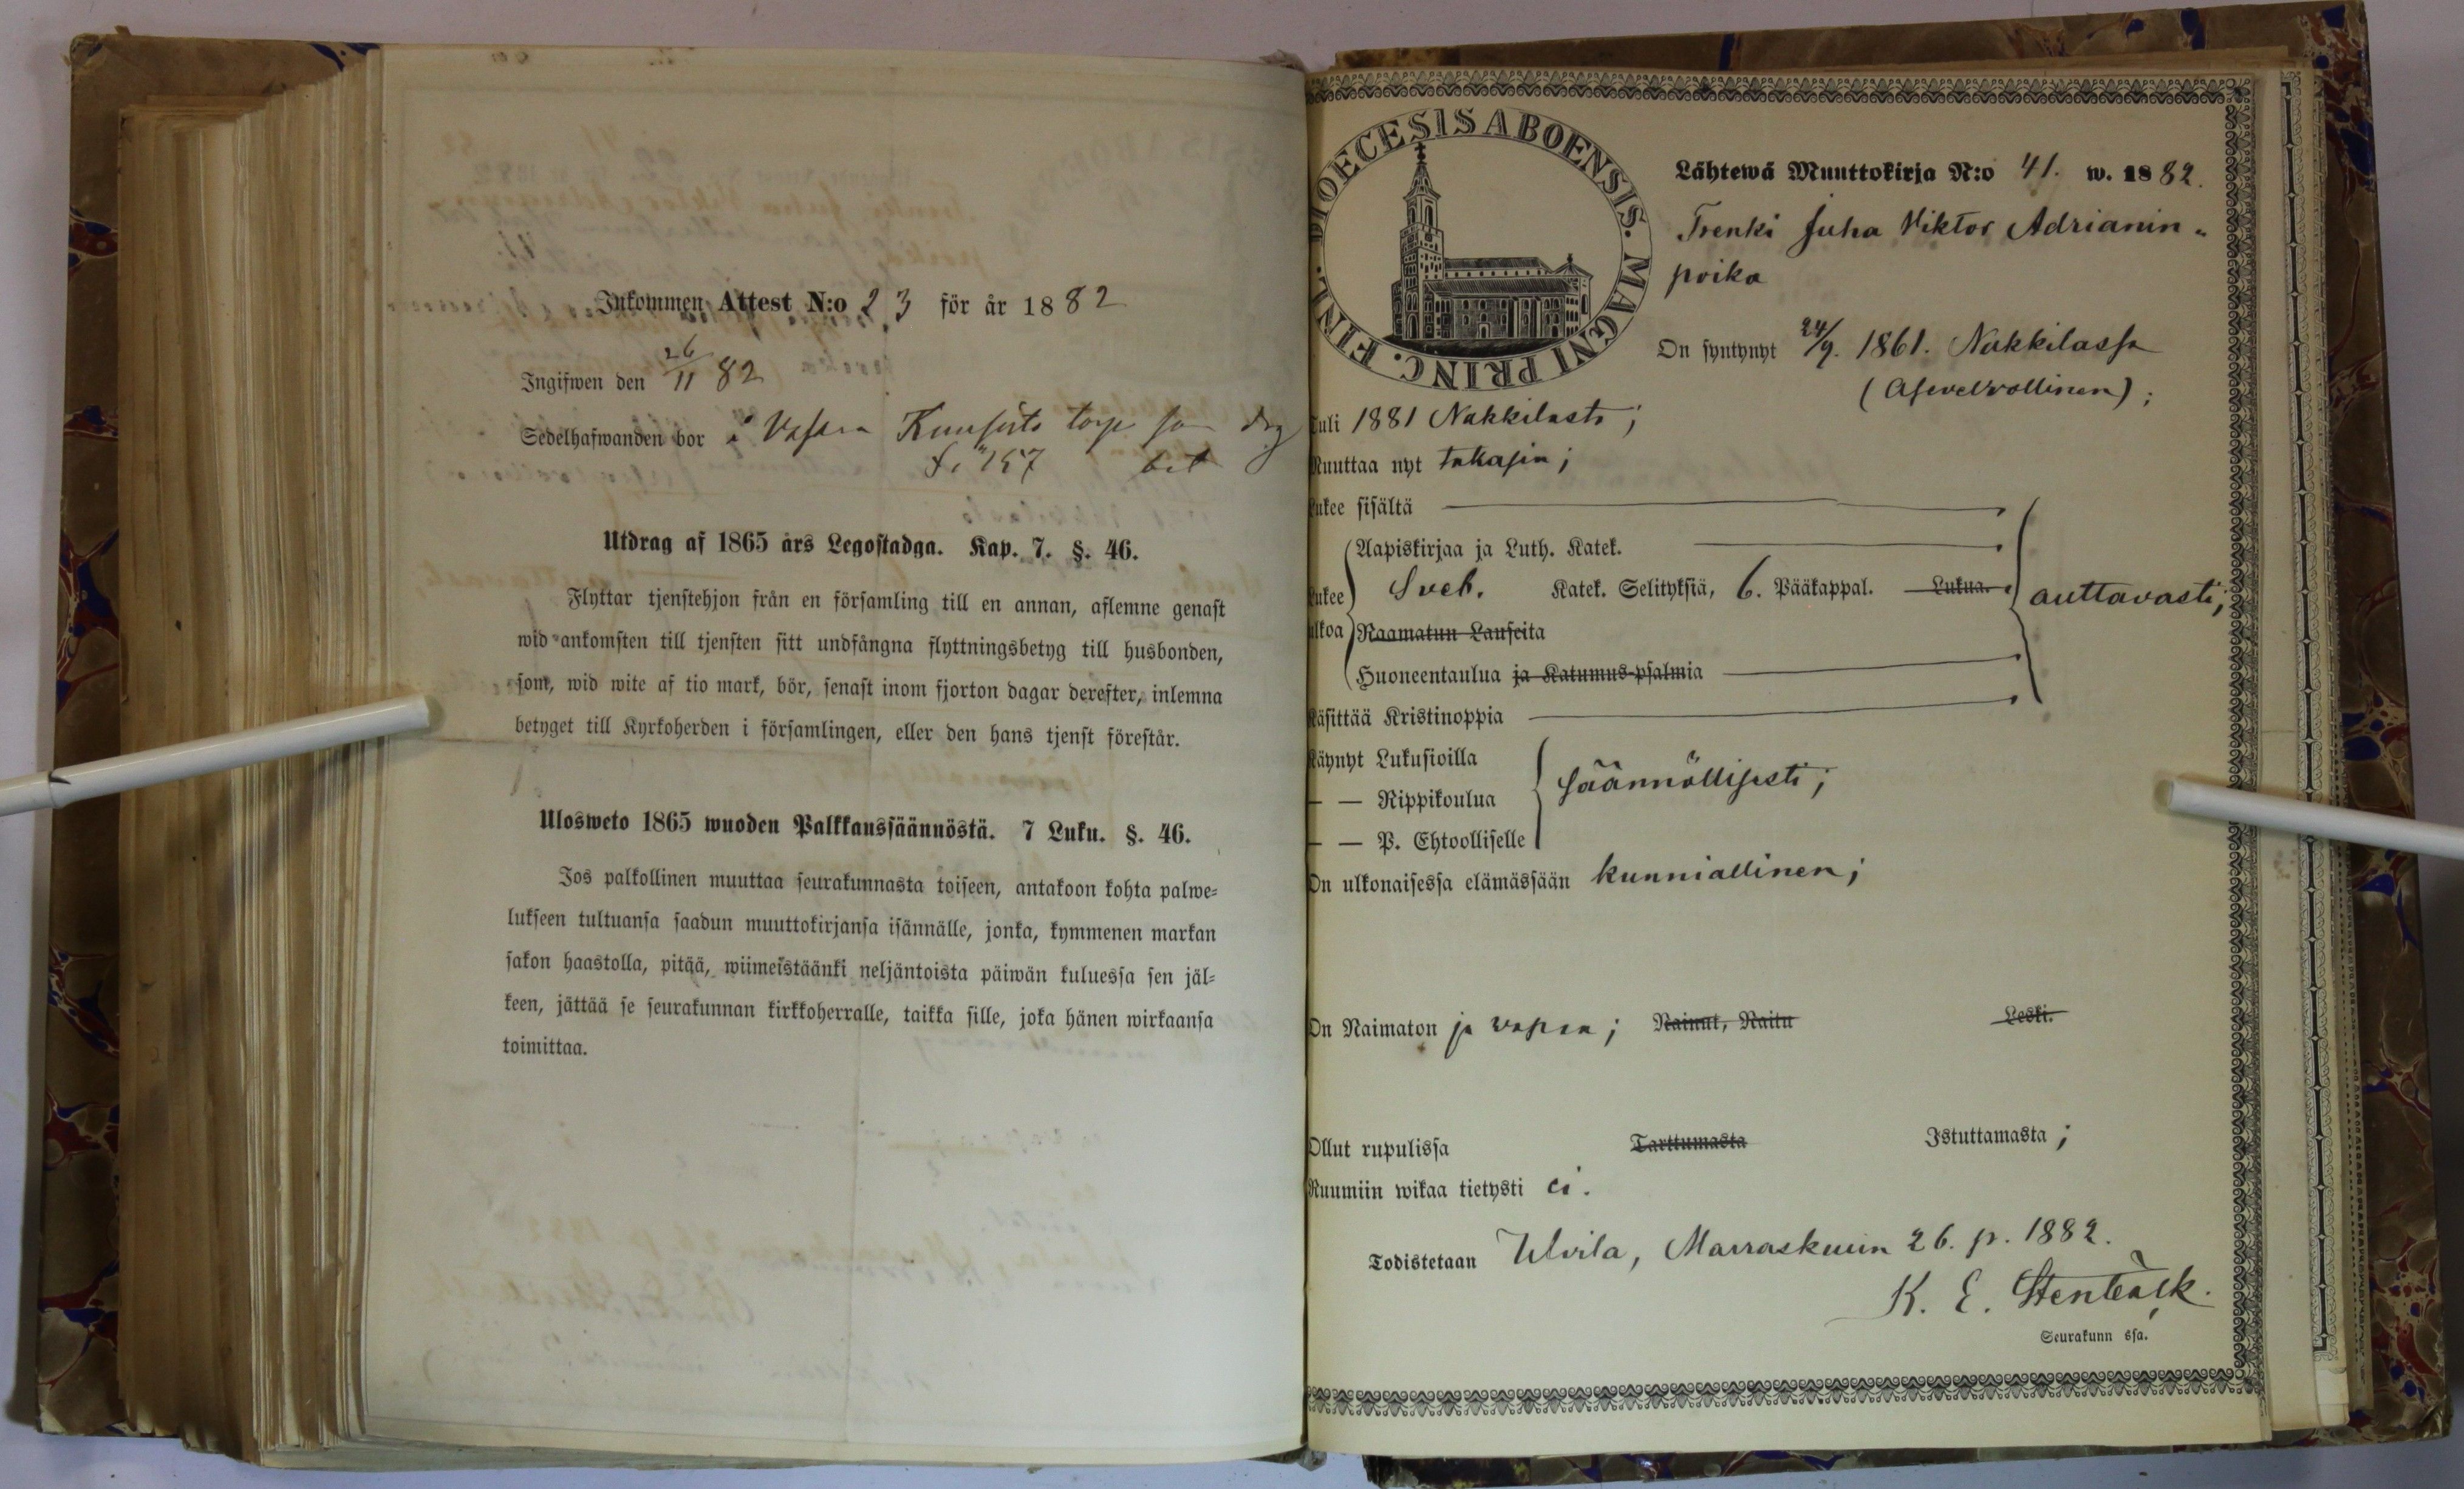 Inkommen Attest N:o 23 för år 1882
Ingifwen den 26/11 82
Sedelhafwanden bor i Vasara Kuusisto torp som drg
S. 157 bet
Utdrag af 1865 års Legostadga. Kap. 7. §. 46.
Flyttar tjenstehjon från en församling till en annan, aflemne genast
wid ankomsten till tjensten sitt undfångna flyttningsbetyg till husbonden,
som, wid wite af tio mark, bör, senast inom fjorton dagar derefter, inlemna
betyget till Kyrkoherden i församlingen, eller den hans tjenst förestår.
Ulosweto 1865 wuoden Palkkaussäännöstä. 7 Luku. §. 46.
Jos palkollinen muuttaa seurakunnasta toiseen, antakoon kohta palwe-
lukseen tultuansa saadun muuttokirjansa isännälle, jonka, kymmenen markan
sakon haastolla, pitää, wiimeistäänki neljäntoista päiwän kuluessa sen jäl-
keen, jättää se seurakunnan kirkkoherralle, taikka sille, joka hänen wirkaansa
toimittaa.
DIOECESIS ABOENSIS. MAGNI PRINC. FINL.
Lähtewä Muuttokirja N:o 41. w. 1882.
Trenki Juha Viktor Adrianin-
poika
On syntynyt 24/9. 1861. Nakkilassa
(Asevelvollinen);
Tuli 1881 Nakkilasta;
Muuttaa nyt takasin;
Lukee sisältä
Aapiskirjaa ja Luth. Katek.
Lukee Sveb. Katek. Selityksiä, 6. Pääkappal. Lukua. auttavasti;
ulkoa Raamatun Lauseita
Huoneentaulua ja Katumus-psalmia
Käsittää Kristinoppia
Käynyt Lukusioilla
— — Rippikoulua säännöllisesti;
— — P. Ehtoolliselle
On ulkonaisessa elämässään kunniallinen;
On Naimaton ja vapaa; Nainut, Naitu Leski.
Ollut rupulissa Tarttumasta Istuttamasta;
Ruumiin wikaa tietysti ei.
Todistetaan Ulvila, Marraskuun 26. p. 1882.
K. E. Stenbäck.
Seurakunn ssa.